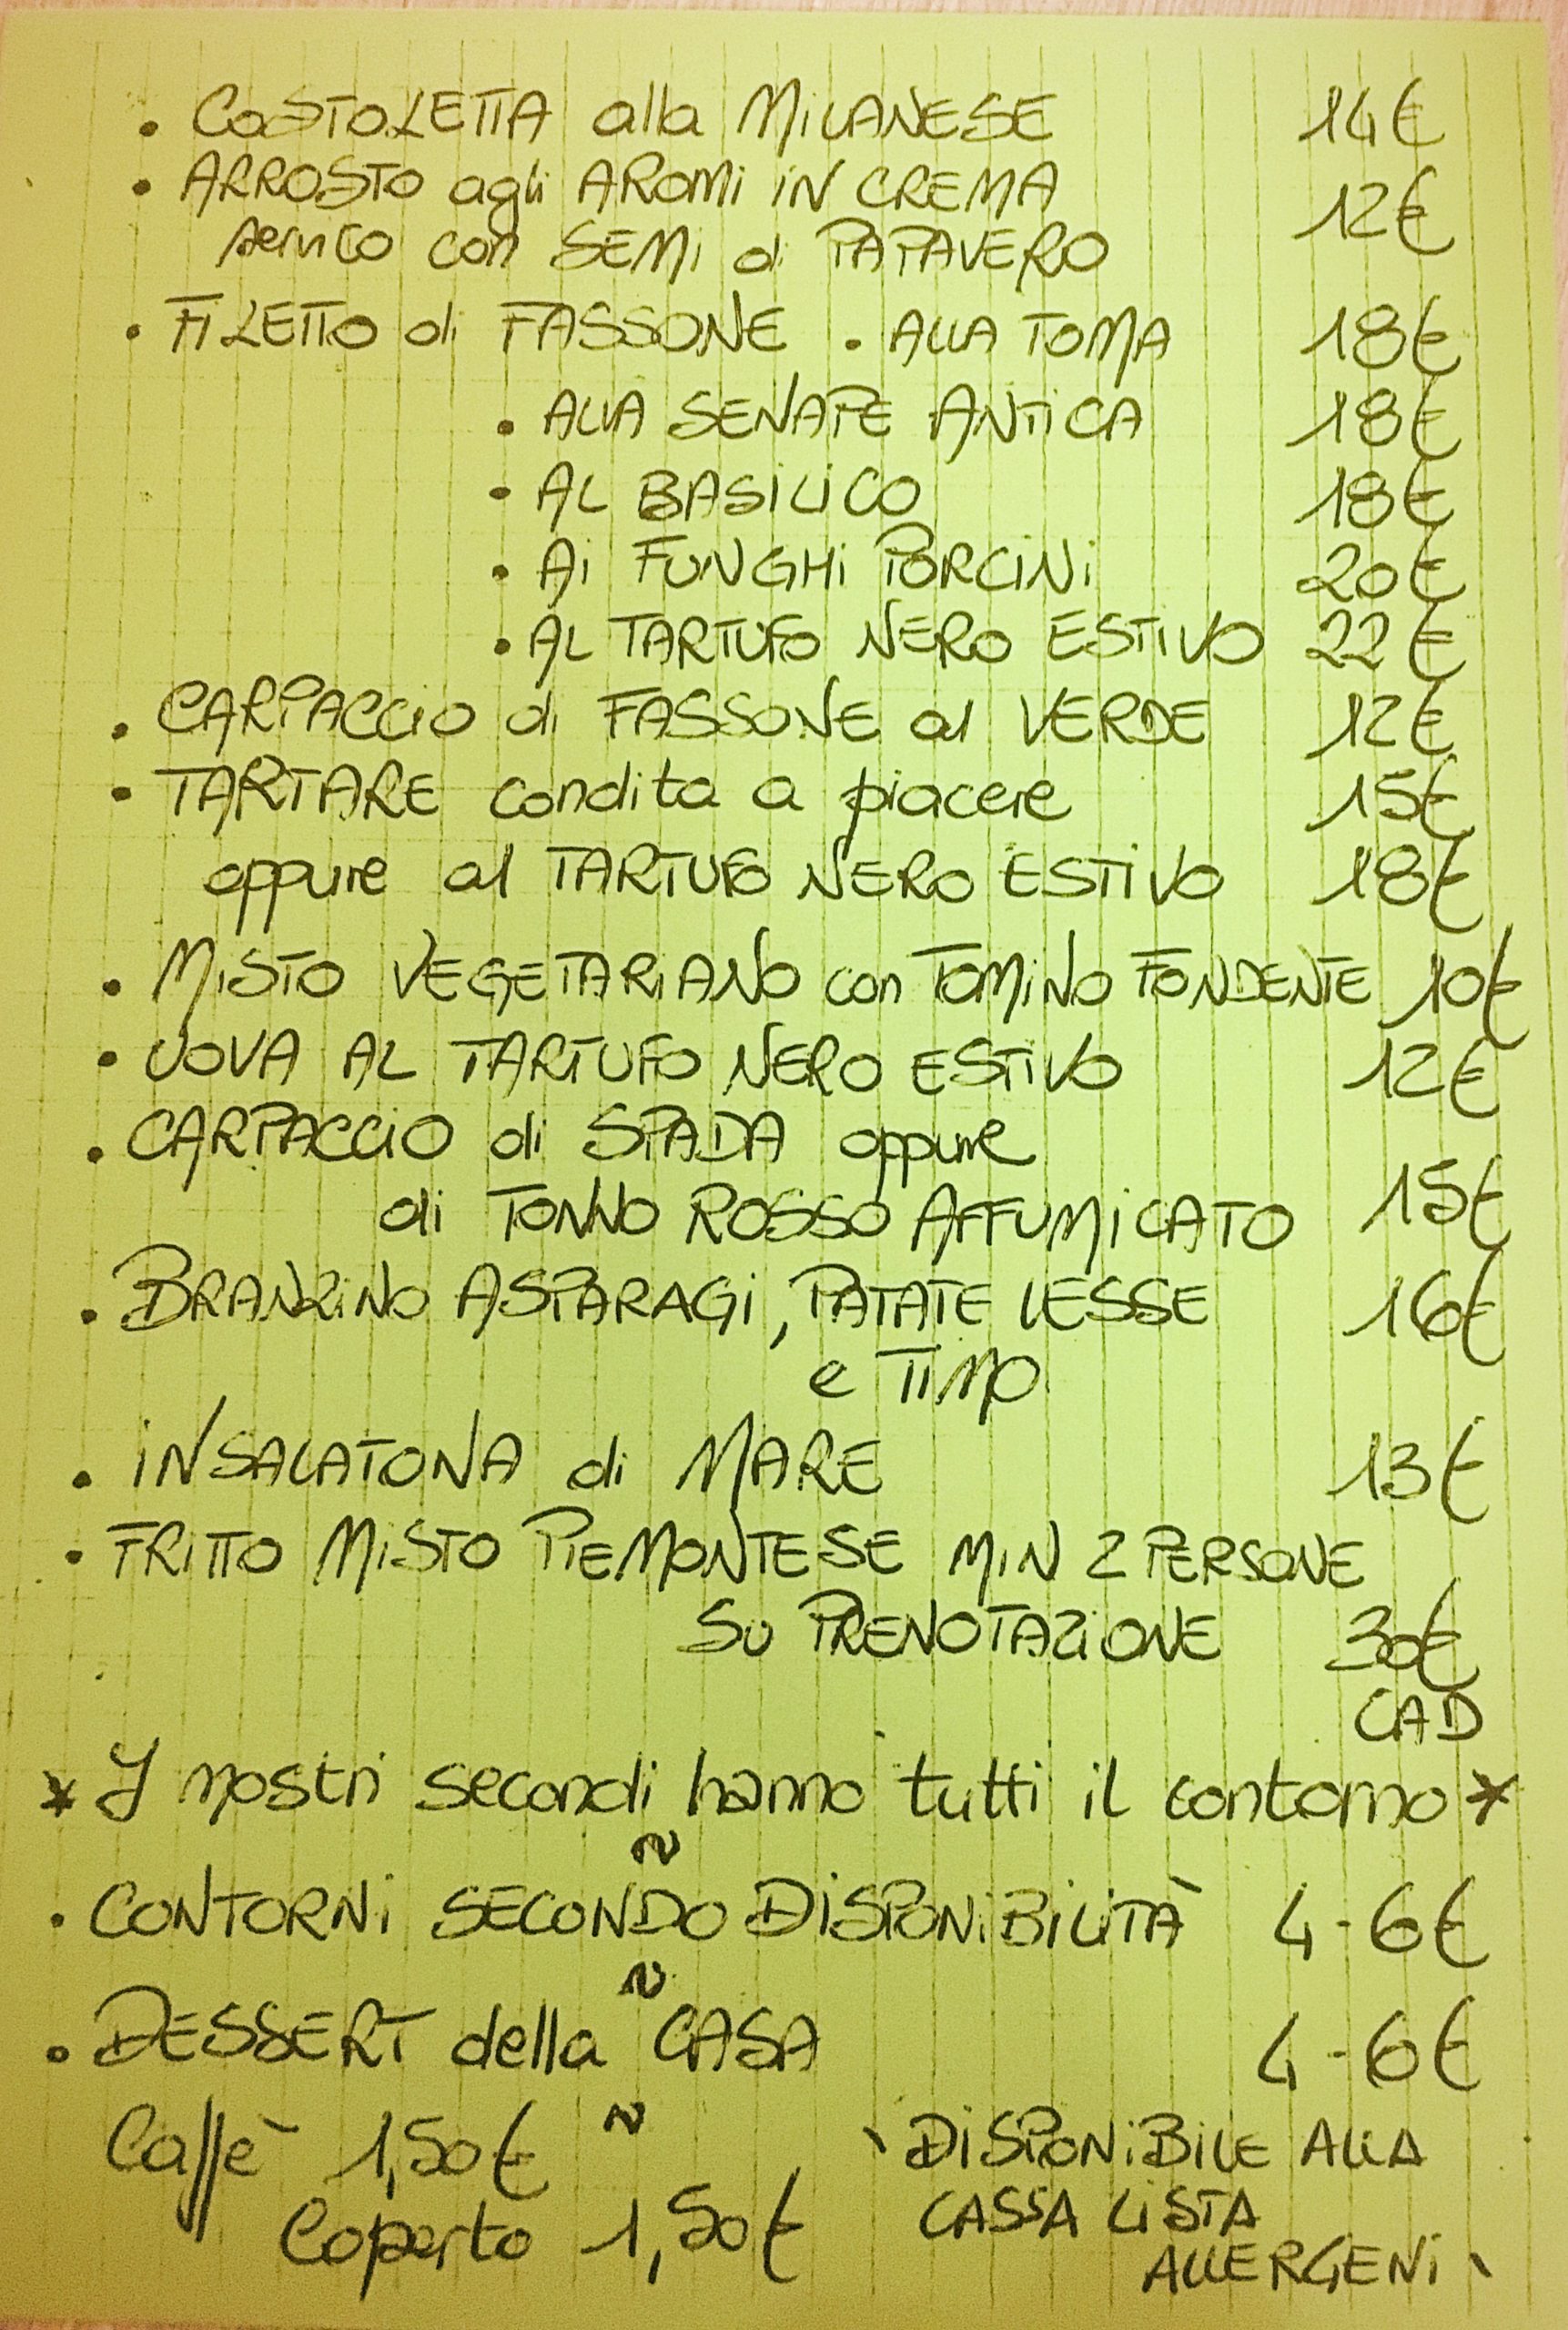 • COSTOLETTA alla MILANESE 14€
• ARROSTO agli AROMI IN CREMA
servito con SEMI di PAPAVERO 12€
• FILETTO di FASSONE • ALLA TOMA 18€
• ALLA SENAPE ANTICA 18€
• AL BASILICO 18€
• Ai FUNGHI PORCINI 20€
• AL TARTUFO NERO ESTIVO 22€
• CARPACCIO di FASSONE al VERDE 12€
• TARTARE condita a piacere 15€
oppure al TARTUFO NERO ESTIVO 18€
• MISTO VEGETARIANO con TOMINO FONDENTE 10€
• UOVA AL TARTUFO NERO ESTIVO 12€
• CARPACCIO di SPADA oppure
di TONNO ROSSO AFFUMICATO 15€
• BRANZINO ASPARAGI, PATATE LESSE 16€
e TIMO
• INSALATONA di MARE 13€
• FRITTO MISTO PIEMONTESE MIN 2 PERSONE
SU PRENOTAZIONE 30€
CAD
* I nostri secondi hanno tutti il contorno *
~
• CONTORNI SECONDO DISPONIBILITÀ 4-6€
~
• DESSERT della CASA 4-6€
~
Caffè 1,50€
Coperto 1,50€
\ DISPONIBILE ALLA
CASSA LISTA
ALLERGENI \